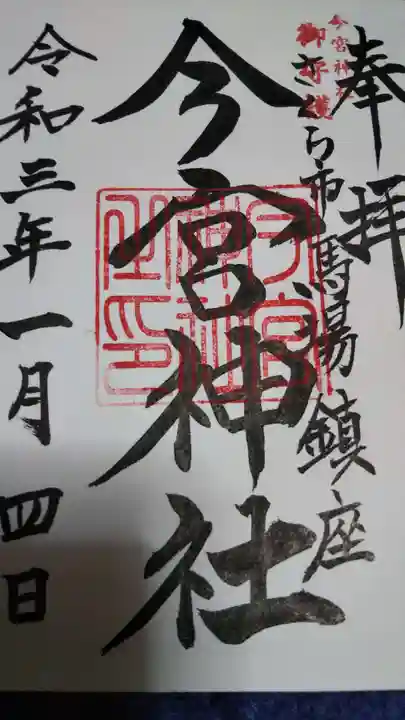 奉拝
今宮神社
御守護
さくら市馬場鎮座
今宮神社
今宮
神社
之印
令和三年一月四日